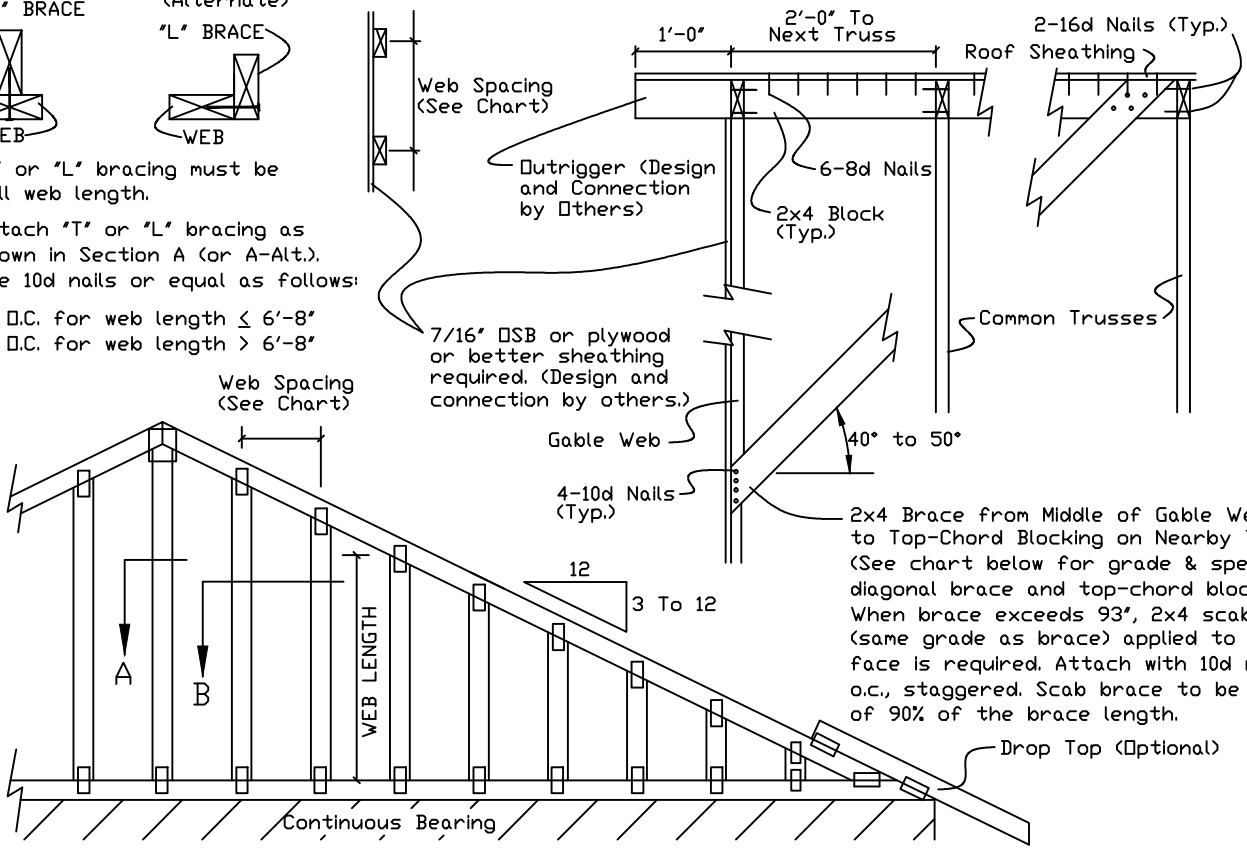 " BRACE
(Alternate)
"L" BRACE
WEB
WEB
" or "L" bracing must be
web length.
"T" or "L" bracing as
in Section A (or A-Alt.).
10d nails or equal as follows:
O.C. for web length ≤ 6'-8"
O.C. for web length > 6'-8"
Web Spacing
(See Chart)
1'-0"
2'-0" To
Next Truss
2-16d Nails (Typ.)
Roof Sheathing
Outrigger (Design
and Connection
by Others)
6-8d Nails
2x4 Block
(Typ.)
Common Trusses
7/16" OSB or plywood
or better sheathing
required. (Design and
connection by others.)
Gable Web
40° to 50°
4-10d Nails
(Typ.)
2x4 Brace from Middle of Gable
to Top-Chord Blocking on Nearby
(See chart below for grade &
diagonal brace and top-chord
When brace exceeds 93", 2x4
(same grade as brace) applied to
face is required. Attach with 10d
o.c., staggered. Scab brace to be
of 90% of the brace length.
Web Spacing
(See Chart)
12
3 To 12
A
B
WEB LENGTH
Drop Top (Optional)
Continuous Bearing